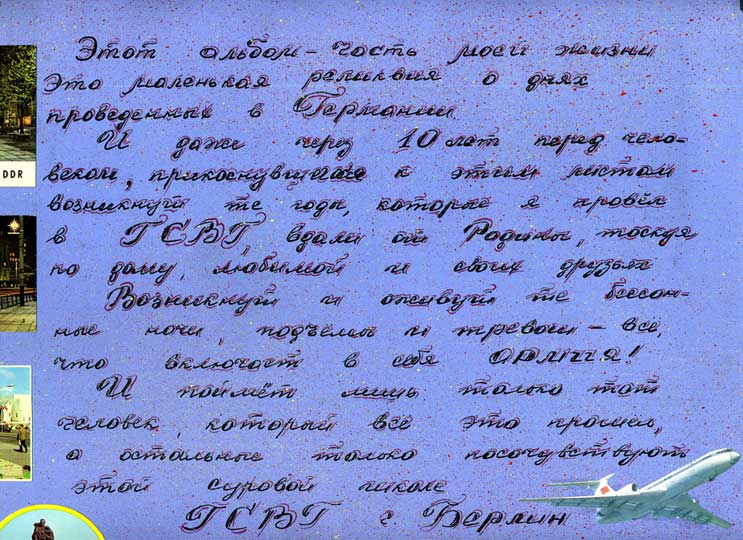 Этот альбом – часть моей жизни
Это маленькая реликвия о днях
проведённых в Германии
И даже через 10 лет перед чело-
веком, прикоснувшимся к этим листам
возникнут те годы, которые я провёл
в ГСВГ, вдали от Родины, тоскуя
по дому, любимой и своих друзьях
Возникнут и оживут те бессон-
ные ночи, подъёмы и тревоги – всё,
что включает в себя АРМИЯ!
И поймёт лишь только тот
человек, который всё это прошел,
а остальные только посочувствуют
этой суровой школе
ГСВГ г Берлин
DDR